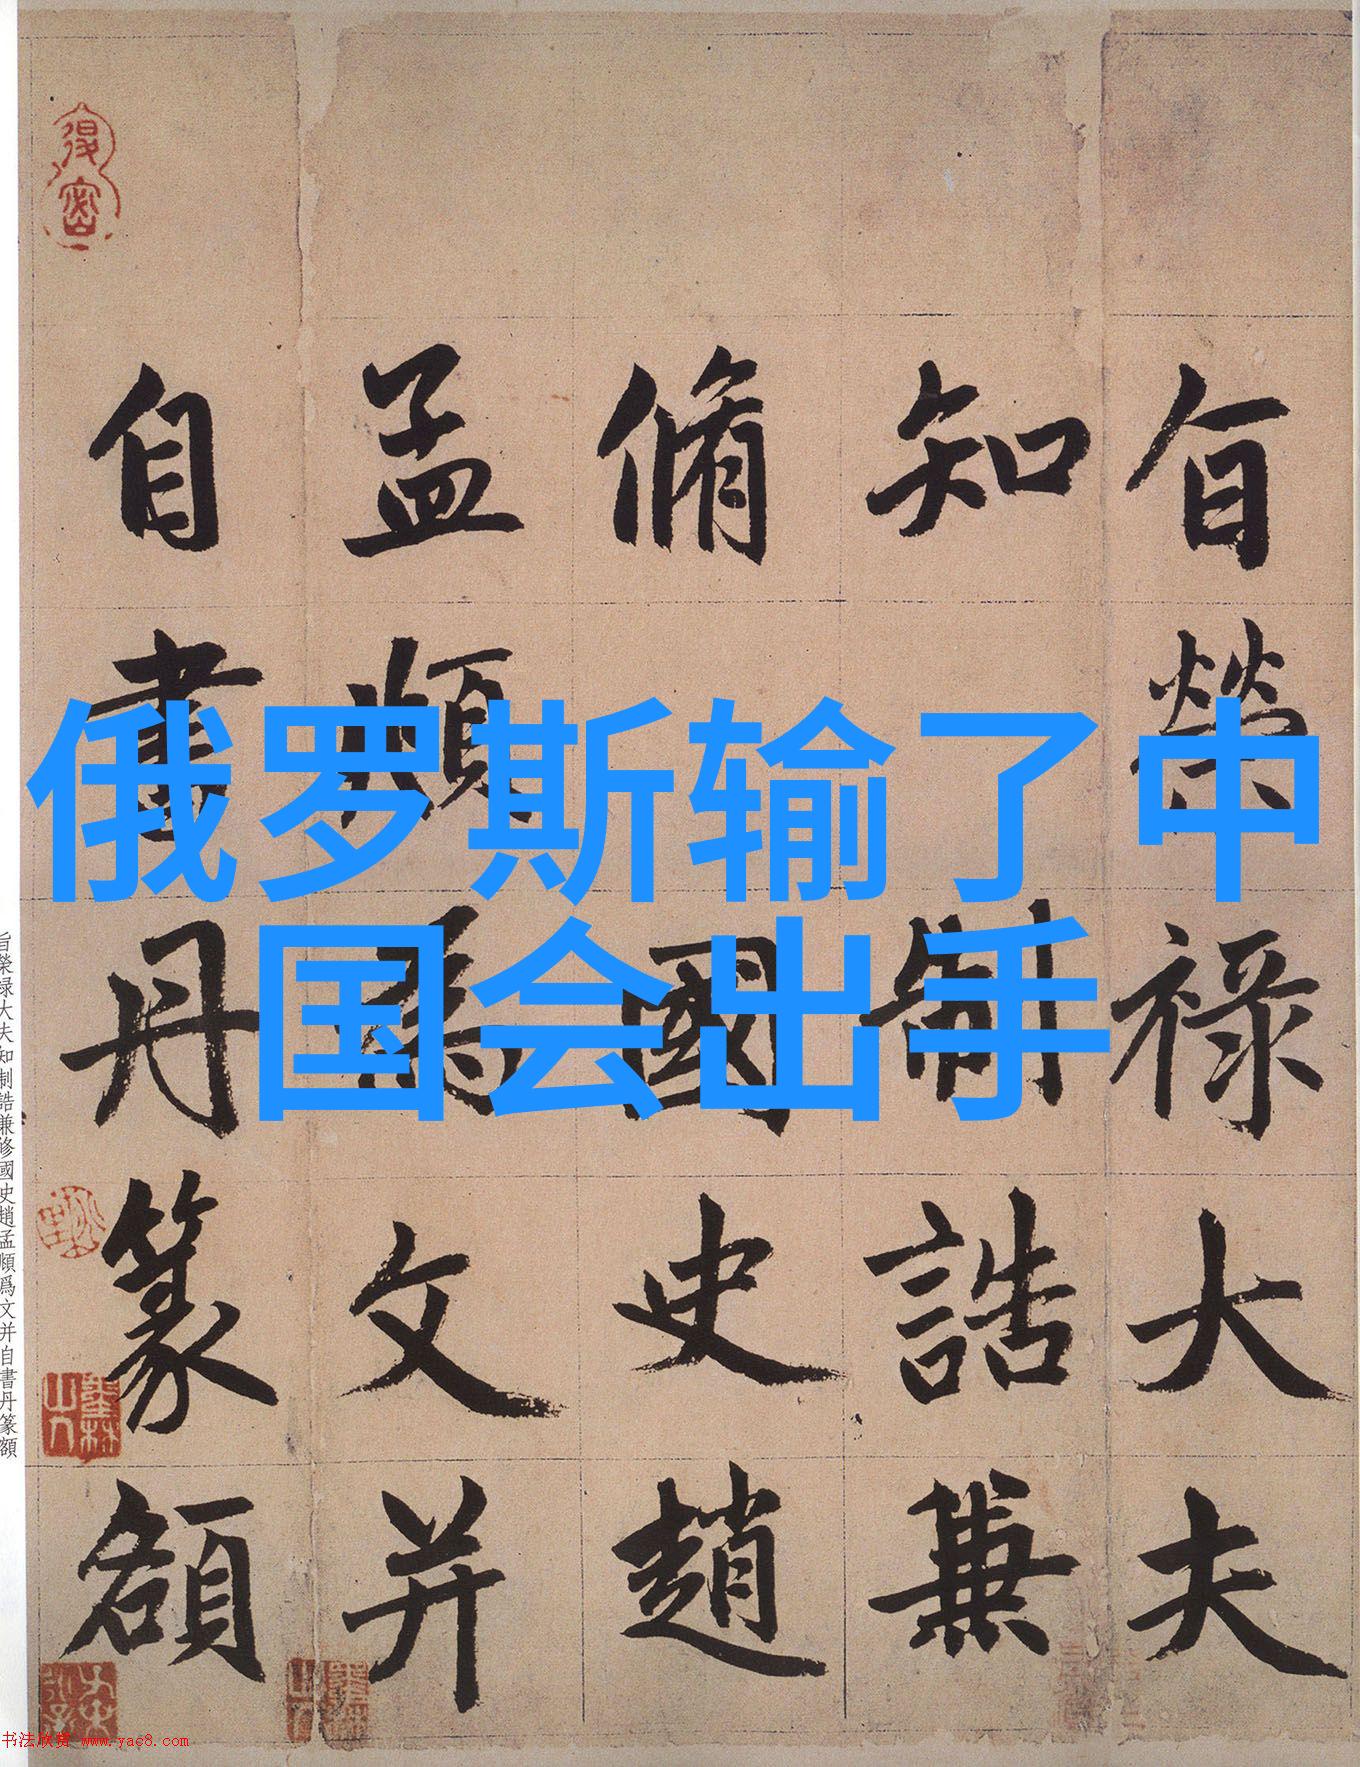 俄罗斯输了中
国会出手
旨榮祿大夫
知制誥兼
脩國史趙
孟頫爲文并
自書丹篆額
旨榮禄大夫知制誥兼修國史趙孟頫爲文并自書丹篆額
书法欣赏 www.yac8.com